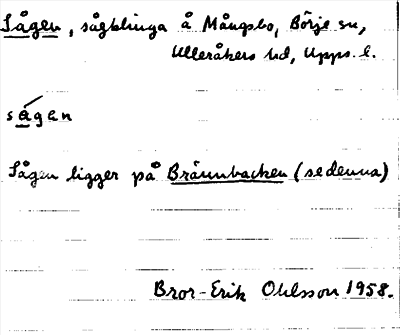 Sågen, sågklinga å Mångsbo, Börje sn,
Ulleråkers hd, Upps. l.
sågen
Sågen ligger på Brännbacken (se denna)
Bror-Erik Ohlsson 1958.